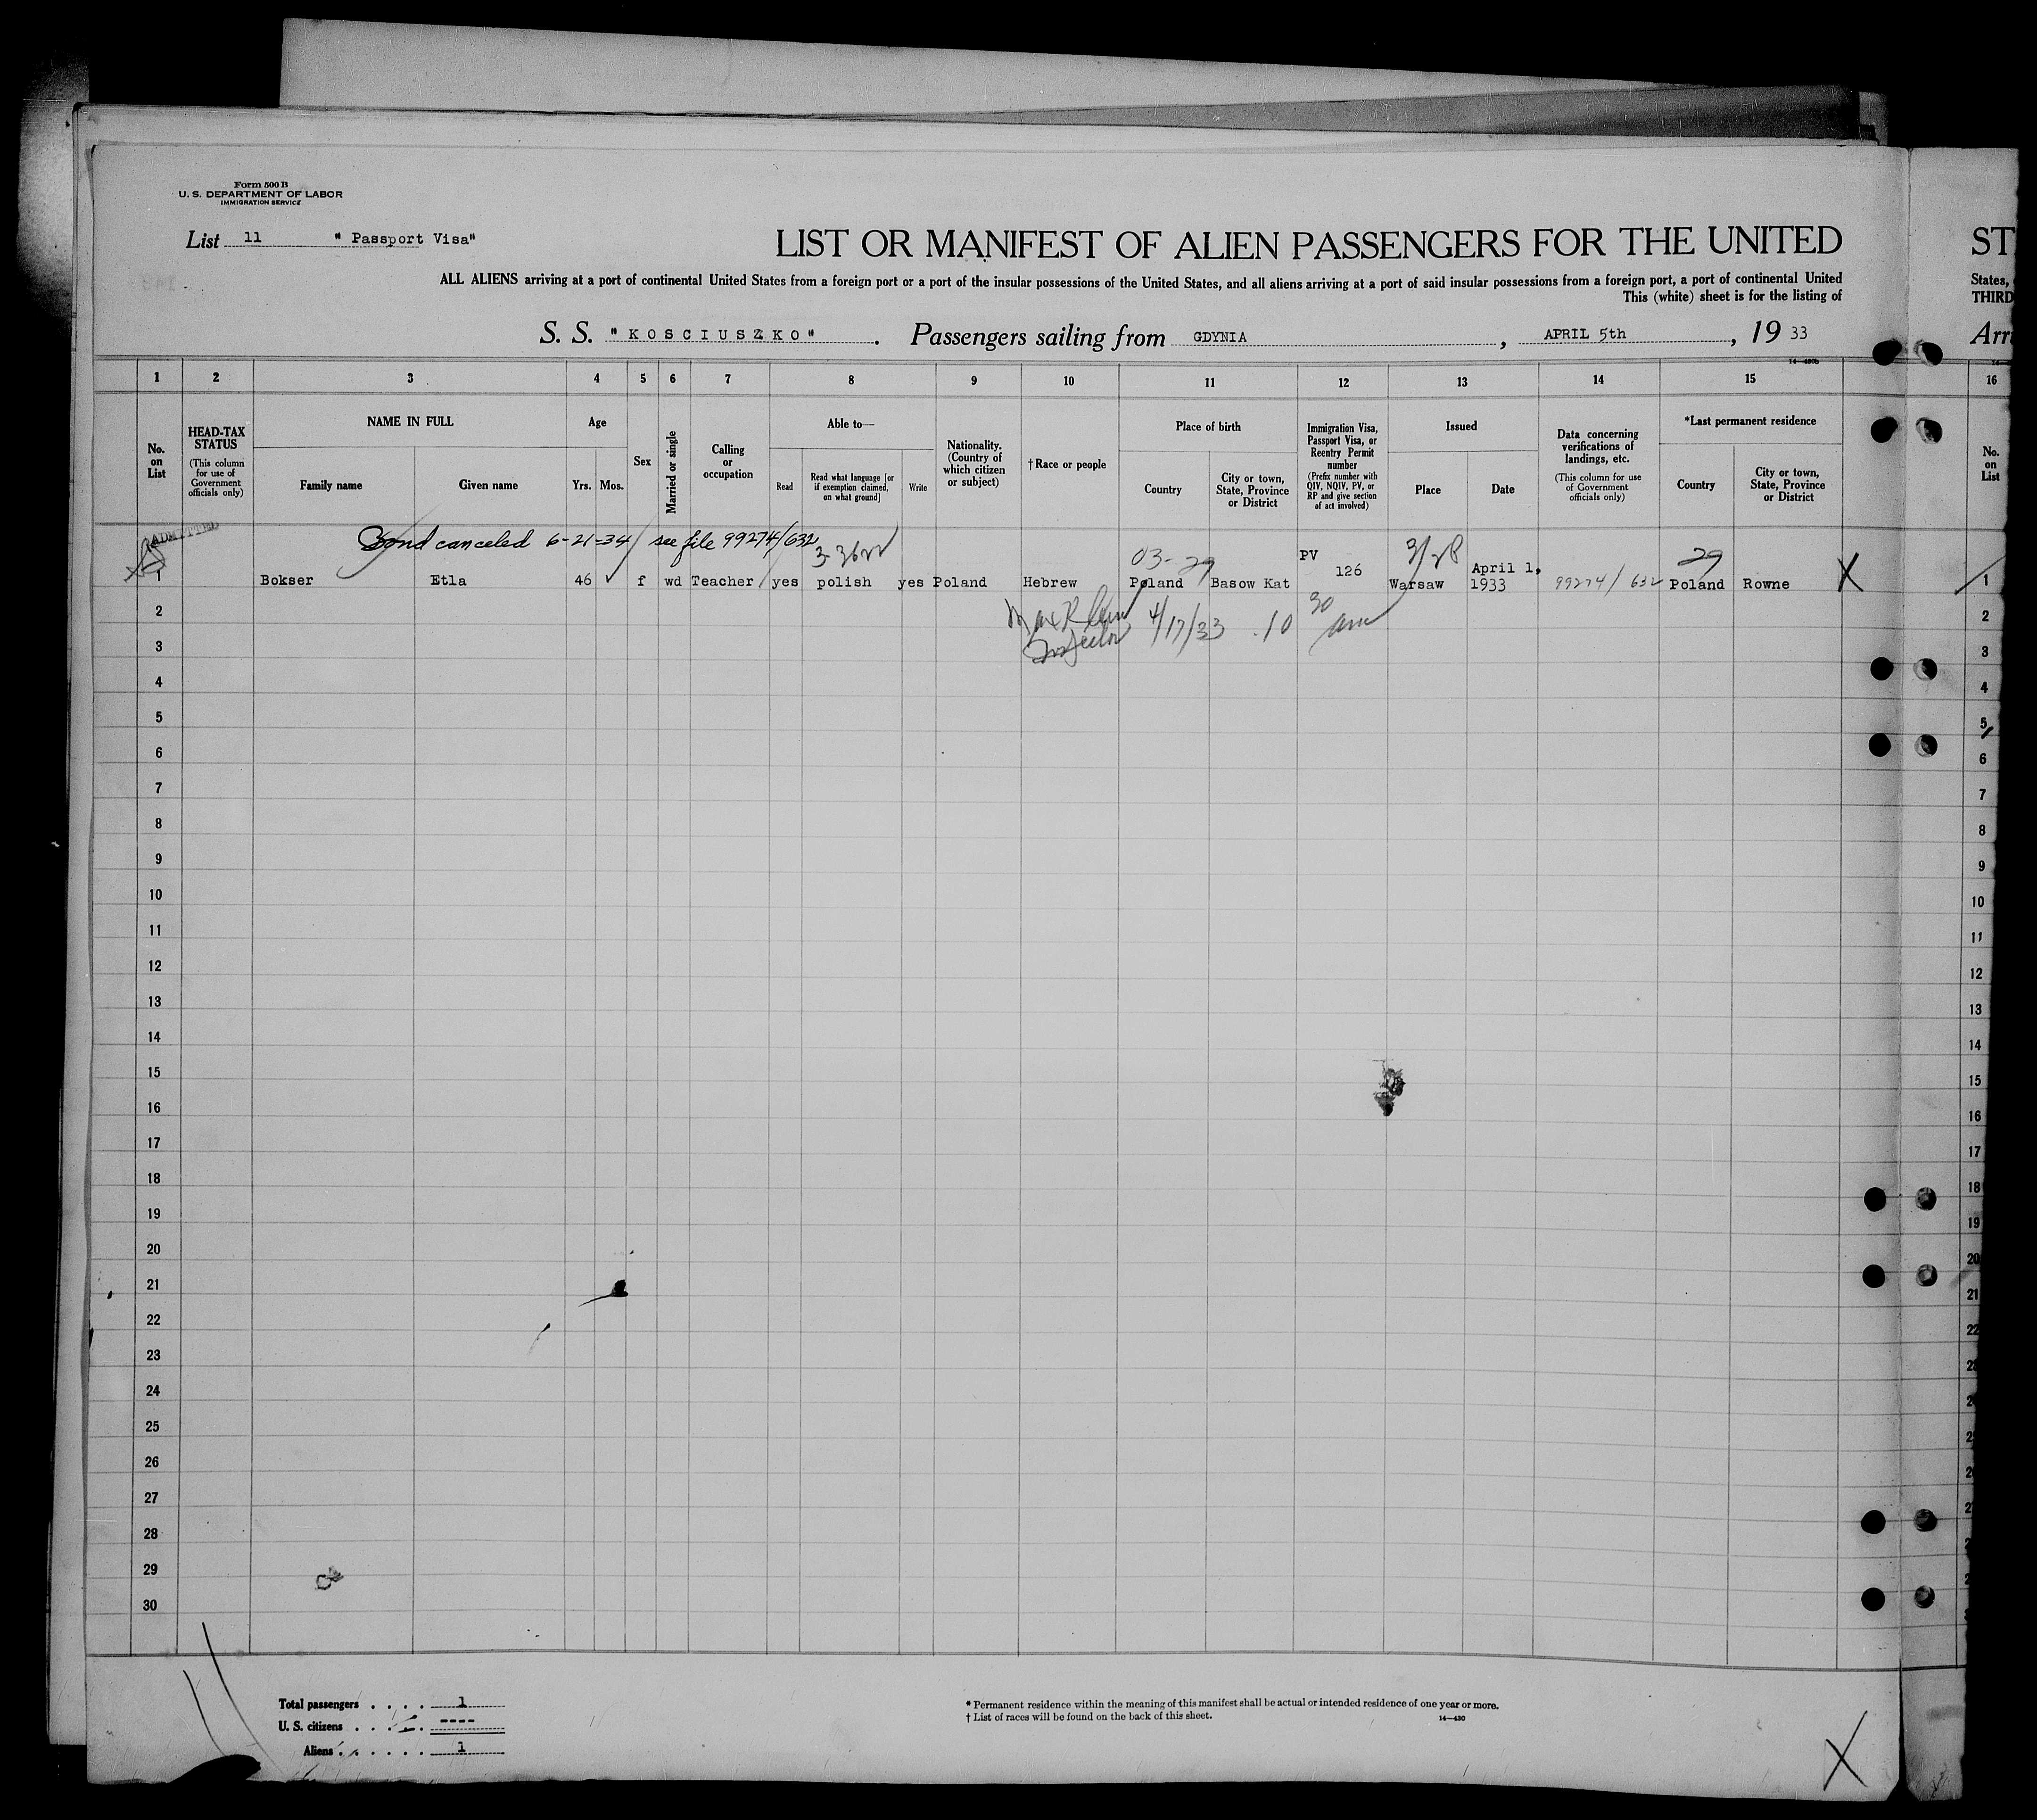 Form 500 B
U. S. DEPARTMENT OF LABOR
IMMIGRATION SERVICE
List 11 " Passport Visa"
LIST OR MANIFEST OF ALIEN PASSENGERS FOR THE UNITED
ST
ALL ALIENS arriving at a port of continental United States from a foreign port or a port of the insular possessions of the United States, and all aliens arriving at a port of said insular possessions from a foreign port, a port of continental United
States,
This (white) sheet is for the listing of
THIRD
S. S. " K O S C I U S Z K O " . Passengers sailing from GDYNIA , APRIL 5th , 19 33
Arri
14—430b
1 2 3 4 5 6 7 8 9 10 11 12 13 14 15 16
No. on List
HEAD-TAX STATUS
(This column for use of Government officials only)
NAME IN FULL
Family name
Given name
Age
Yrs. Mos.
Sex
Married or single
Calling or occupation
Able to—
Read
Read what language [or if exemption claimed, on what ground]
Write
Nationality. (Country of which citizen or subject)
†Race or people
Place of birth
Country
City or town, State, Province or District
Immigration Visa, Passport Visa, or Reentry Permit number
(Prefix number with QIV, NQIV, PV, or RP and give section of act involved)
Issued
Place
Date
Data concerning verifications of landings, etc.
(This column for use of Government officials only)
*Last permanent residence
Country
City or town, State, Province or District
No. on List
ADMITTED
Bond canceled 6-21-34 / see file 99274/632
03-29
PV
3/28
29
1 Bokser Etla 46 ✓ f wd Teacher yes polish yes Poland Hebrew Poland Basow Kat 126 Warsaw April 1, 1933 99274/632 Poland Rowne X 1
4/17/33 10 30 am
Inspector
2 2
3 3
4 4
5 5
6 6
7 7
8 8
9 9
10 10
11 11
12 12
13 13
14 14
15 15
16 16
17 17
18 18
19 19
20 20
21 21
22 22
23
24
25
26
27
28
29
30
Total passengers . . . . 1
U. S. citizens . . . . ----
Aliens . . . . . . 1
* Permanent residence within the meaning of this manifest shall be actual or intended residence of one year or more.
† List of races will be found on the back of this sheet.
14—430
X